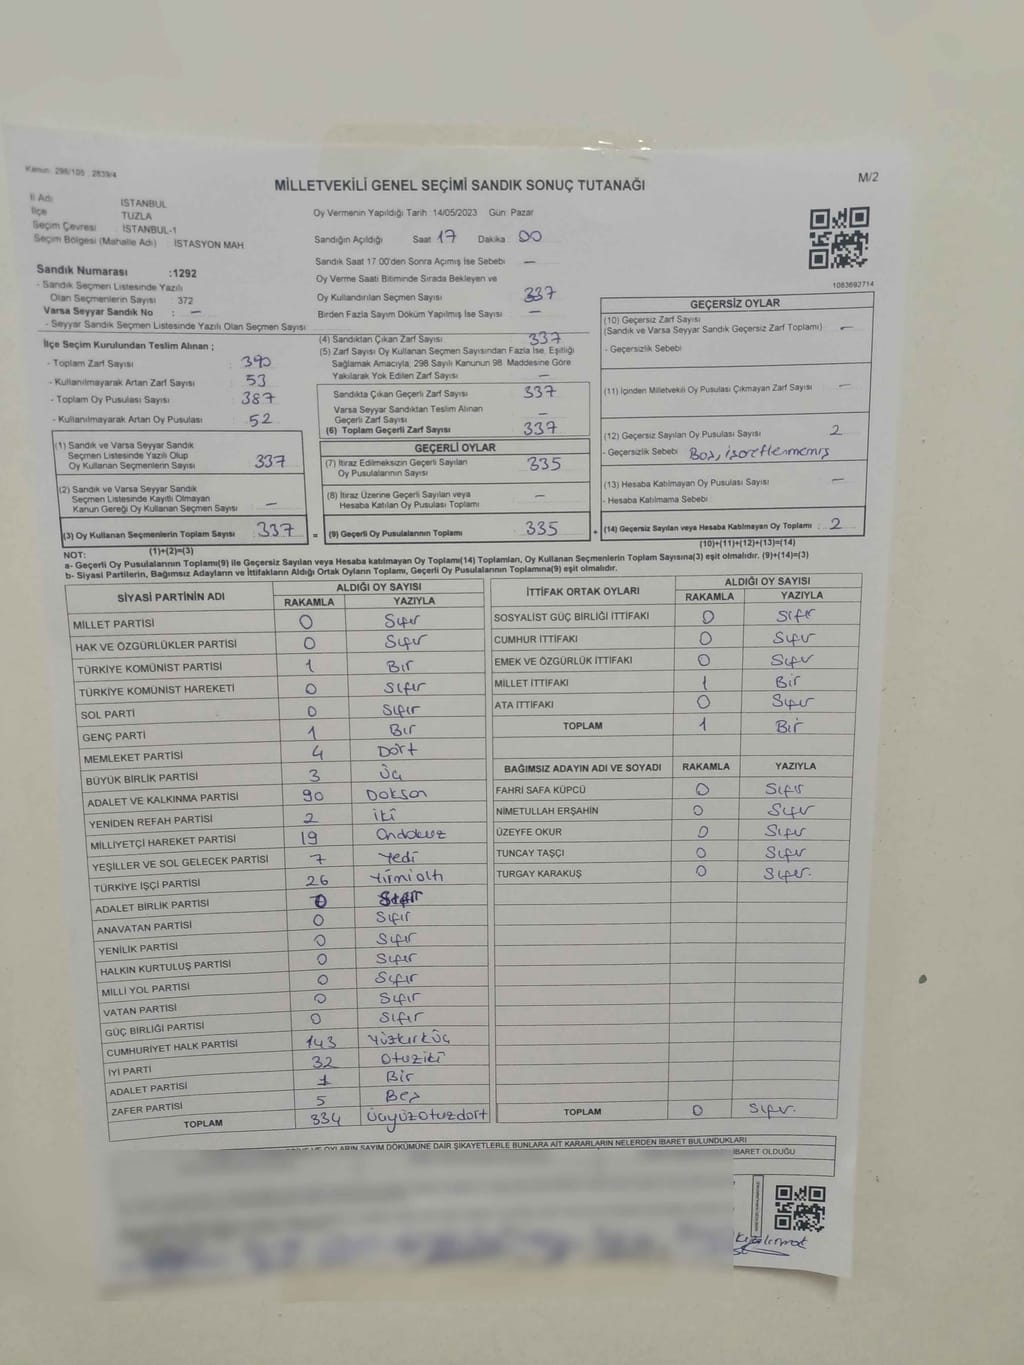 Kanun: 298/105 : 2839/4
M/2
MİLLETVEKİLİ GENEL SEÇİMİ SANDIK SONUÇ TUTANAĞI
İl Adı : İSTANBUL
İlçe : TUZLA
Seçim Çevresi : İSTANBUL-1
Seçim Bölgesi (Mahalle Adı) : İSTASYON MAH
Sandık Numarası :1292
- Sandık Seçmen Listesinde Yazılı
Olan Seçmenlerin Sayısı : 372
Varsa Seyyar Sandık No : —
- Seyyar Sandık Seçmen Listesinde Yazılı Olan Seçmen Sayısı :
Oy Vermenin Yapıldığı Tarih :14/05/2023 Gün: Pazar
Sandığın Açıldığı Saat 17 Dakika : 00
Sandık Saat 17:00'den Sonra Açımış İse Sebebi : —
Oy Verme Saati Bitiminde Sırada Bekleyen ve
Oy Kullandırılan Seçmen Sayısı : 337
Birden Fazla Sayım Döküm Yapılmış İse Sayısı : —
1083692714
İlçe Seçim Kurulundan Teslim Alınan ;
- Toplam Zarf Sayısı : 390
- Kullanılmayarak Artan Zarf Sayısı : 53
- Toplam Oy Pusulası Sayısı : 387
- Kullanılmayarak Artan Oy Pusulası : 52
(1) Sandık ve Varsa Seyyar Sandık
Seçmen Listesinde Yazılı Olup
Oy Kullanan Seçmenlerin Sayısı : 337
(2) Sandık ve Varsa Seyyar Sandık
Seçmen Listesinde Kayıtlı Olmayan
Kanun Gereği Oy Kullanan Seçmen Sayısı : —
(3) Oy Kullanan Seçmenlerin Toplam Sayısı : 337
(1)+(2)=(3)
(4) Sandıktan Çıkan Zarf Sayısı : 337
(5) Zarf Sayısı Oy Kullanan Seçmen Sayısından Fazla İse, Eşitliği
Sağlamak Amacıyla, 298 Sayılı Kanunun 98. Maddesine Göre
Yakılarak Yok Edilen Zarf Sayısı : —
Sandıkta Çıkan Geçerli Zarf Sayısı : 337
Varsa Seyyar Sandıktan Teslim Alınan
Geçerli Zarf Sayısı : —
(6) Toplam Geçerli Zarf Sayısı : 337
GEÇERLİ OYLAR
(7) İtiraz Edilmeksizin Geçerli Sayılan
Oy Pusulalarının Sayısı : 335
(8) İtiraz Üzerine Geçerli Sayılan veya
Hesaba Katılan Oy Pusulası Toplamı : —
= (9) Geçerli Oy Pusulalarının Toplamı : 335
GEÇERSİZ OYLAR
(10) Geçersiz Zarf Sayısı
(Sandık ve Varsa Seyyar Sandık Geçersiz Zarf Toplamı) : —
- Geçersizlik Sebebi
(11) İçinden Milletvekili Oy Pusulası Çıkmayan Zarf Sayısı : —
(12) Geçersiz Sayılan Oy Pusulası Sayısı : 2
- Geçersizlik Sebebi : Boş, işaretlenmemiş
(13) Hesaba Katılmayan Oy Pusulası Sayısı : —
- Hesaba Katılmama Sebebi
+ (14) Geçersiz Sayılan veya Hesaba Katılmayan Oy Toplamı : 2
(10)+(11)+(12)+(13)=(14)
NOT:
a- Geçerli Oy Pusulalarının Toplamı(9) ile Geçersiz Sayılan veya Hesaba katılmayan Oy Toplamı(14) Toplamları, Oy Kullanan Seçmenlerin Toplam Sayısına(3) eşit olmalıdır. (9)+(14)=(3)
b- Siyasi Partilerin, Bağımsız Adayların ve İttifakların Aldığı Ortak Oyların Toplamı, Geçerli Oy Pusulalarının Toplamına(9) eşit olmalıdır.
SİYASİ PARTİNİN ADI ALDIĞI OY SAYISI
RAKAMLA YAZIYLA
MİLLET PARTİSİ 0 Sıfır
HAK VE ÖZGÜRLÜKLER PARTİSİ 0 Sıfır
TÜRKİYE KOMÜNİST PARTİSİ 1 Bir
TÜRKİYE KOMÜNİST HAREKETİ 0 Sıfır
SOL PARTİ 0 Sıfır
GENÇ PARTİ 1 Bir
MEMLEKET PARTİSİ 4 Dört
BÜYÜK BİRLİK PARTİSİ 3 Üç
ADALET VE KALKINMA PARTİSİ 90 Doksan
YENİDEN REFAH PARTİSİ 2 iki
MİLLİYETÇİ HAREKET PARTİSİ 19 Ondokuz
YEŞİLLER VE SOL GELECEK PARTİSİ 7 Yedi
TÜRKİYE İŞÇİ PARTİSİ 26 Yirmialtı
ADALET BİRLİK PARTİSİ 0 Sıfır
ANAVATAN PARTİSİ 0 Sıfır
YENİLİK PARTİSİ 0 Sıfır
HALKIN KURTULUŞ PARTİSİ 0 Sıfır
MİLLİ YOL PARTİSİ 0 Sıfır
VATAN PARTİSİ 0 Sıfır
GÜÇ BİRLİĞİ PARTİSİ 0 Sıfır
CUMHURİYET HALK PARTİSİ 143 Yüzkırküç
İYİ PARTİ 32 Otuziki
ADALET PARTİSİ 1 Bir
ZAFER PARTİSİ 5 Beş
TOPLAM 334 üçyüzotuzdört
İTTİFAK ORTAK OYLARI ALDIĞI OY SAYISI
RAKAMLA YAZIYLA
SOSYALİST GÜÇ BİRLİĞİ İTTİFAKI 0 Sıfır
CUMHUR İTTİFAKI 0 Sıfır
EMEK VE ÖZGÜRLÜK İTTİFAKI 0 Sıfır
MİLLET İTTİFAKI 1 Bir
ATA İTTİFAKI 0 Sıfır
TOPLAM 1 Bir
BAĞIMSIZ ADAYIN ADI VE SOYADI RAKAMLA YAZIYLA
FAHRİ SAFA KÜPCÜ 0 Sıfır
NİMETULLAH ERŞAHİN 0 Sıfır
ÜZEYFE OKUR 0 Sıfır
TUNCAY TAŞÇI 0 Sıfır
TURGAY KARAKUŞ 0 Sıfır.
TOPLAM 0 Sıfır.
OYLARIN SAYIM DÖKÜMÜNE DAİR ŞİKAYETLERLE BUNLARA AİT KARARLARIN NELERDEN İBARET BULUNDUKLARI
İBARET OLDUĞU